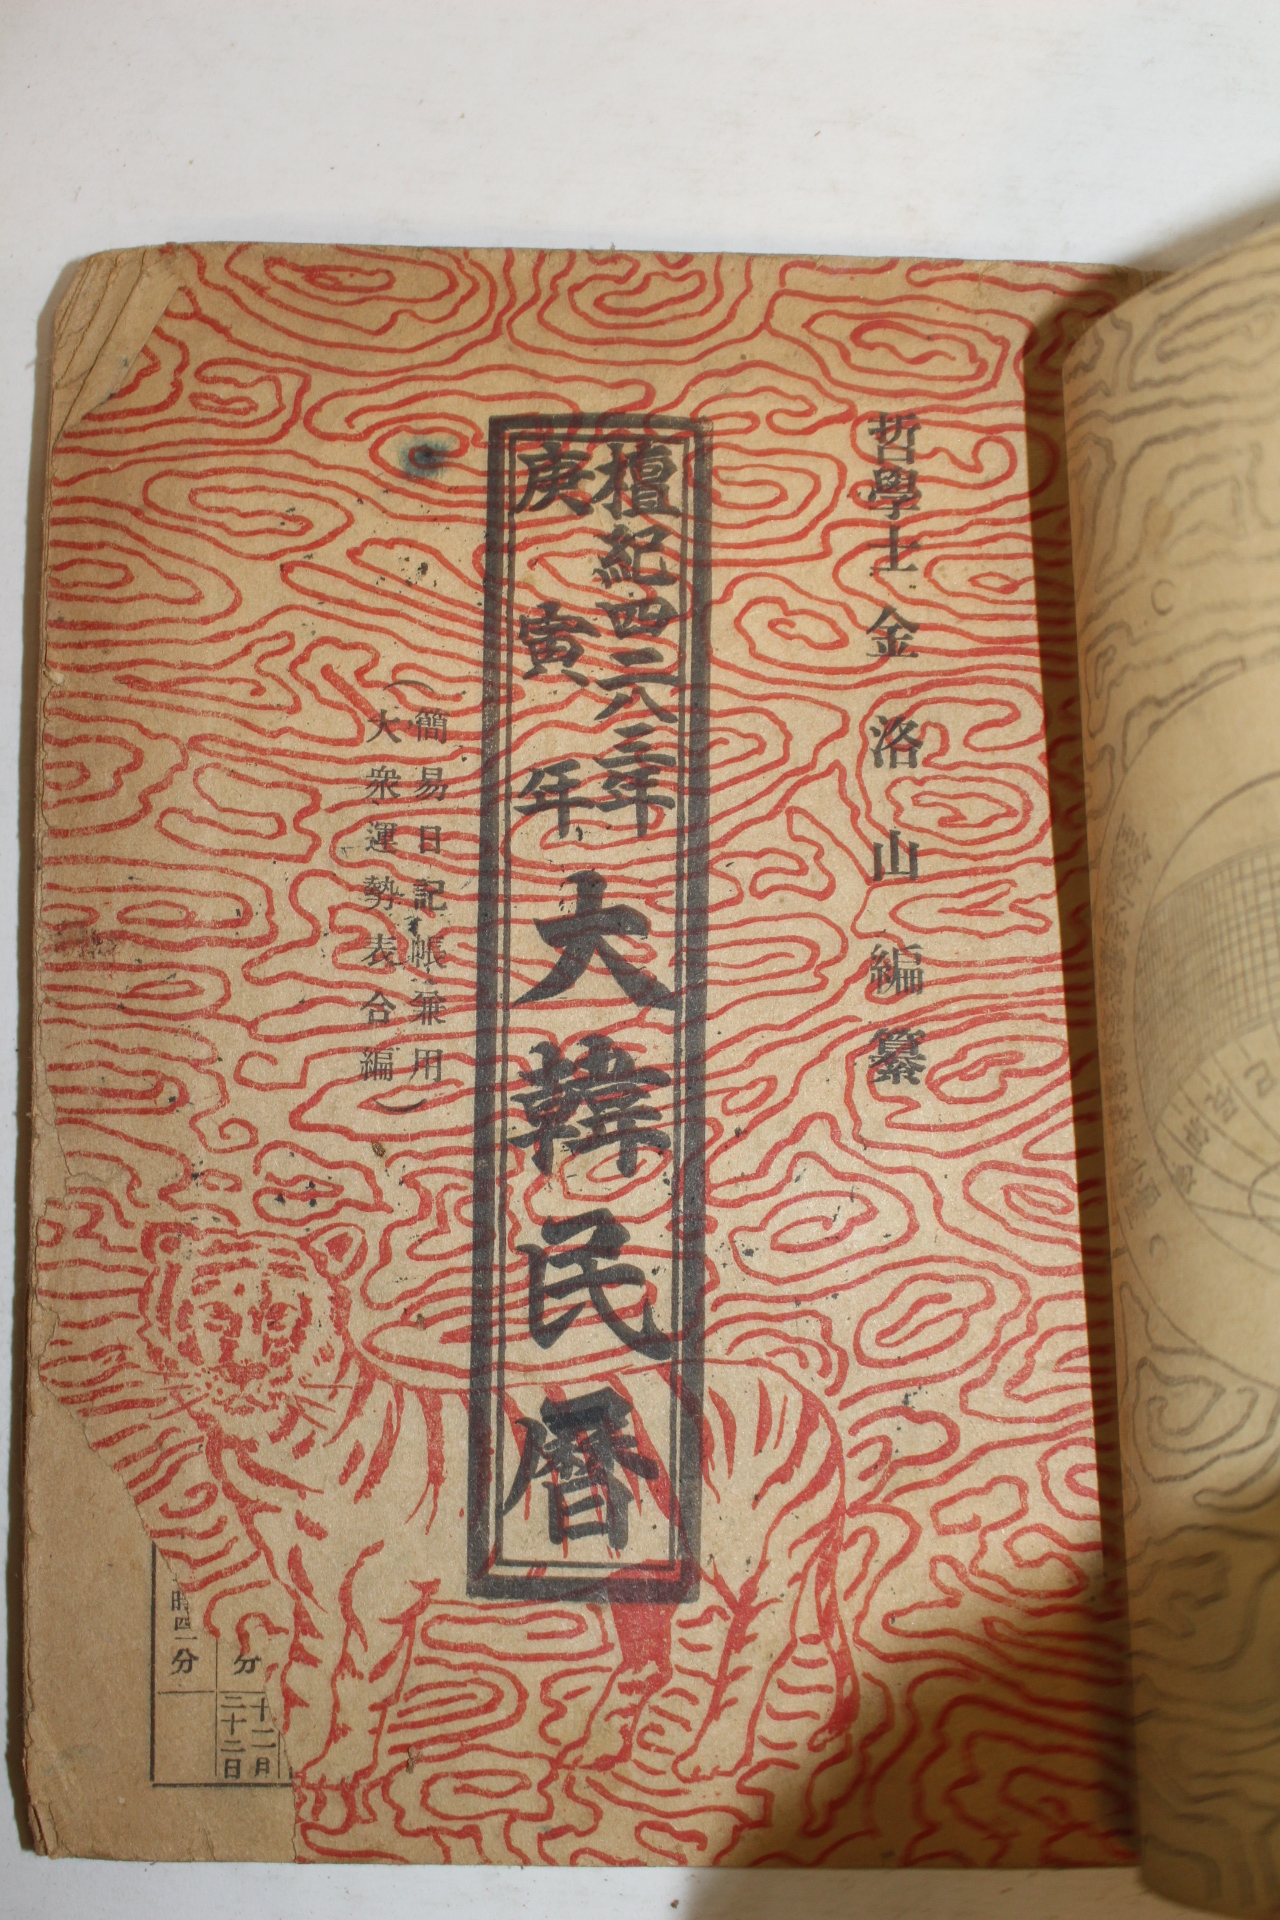 哲學士 金洛山 編纂
檀紀四二八三年
庚寅年
大韓民曆
(簡易日記帳兼用
大衆運勢表合編)
分
十二月
二十二日
時四一分